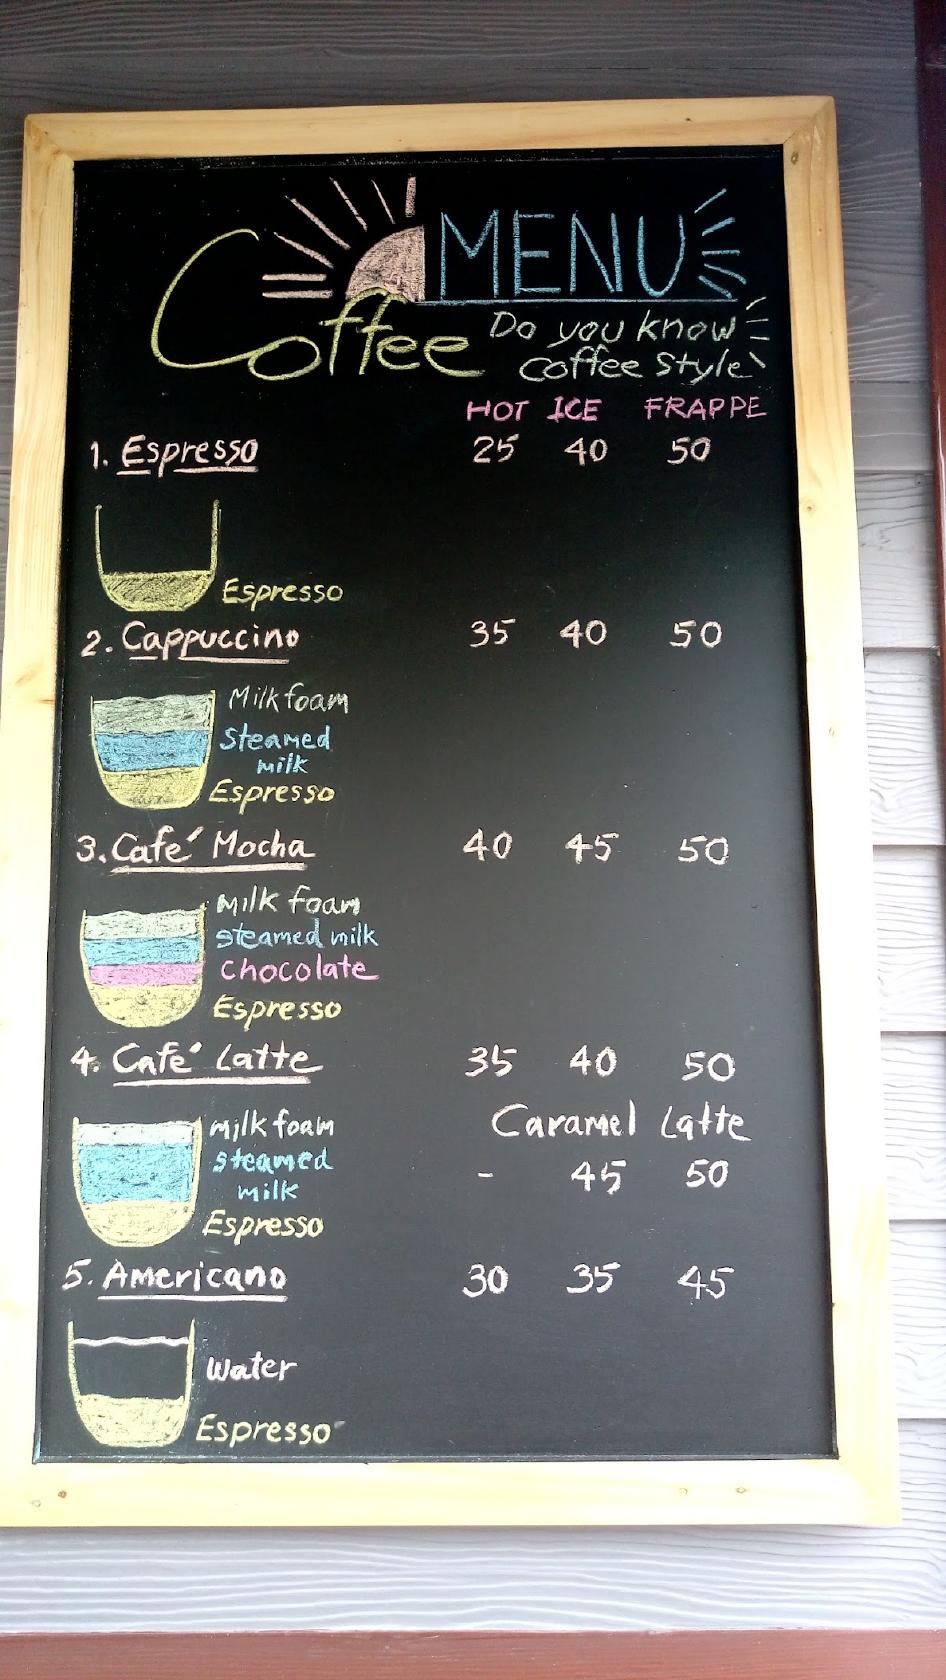 Coffee MENU
Do you know
Coffee Style
HOT ICE FRAPPE
1. Espresso 25 40 50
Espresso
2. Cappuccino 35 40 50
Milk foam
Steamed
milk
Espresso
3. Café Mocha 40 45 50
milk foam
steamed milk
chocolate
Espresso
4. Café Latte 35 40 50
Caramel Latte
- 45 50
milk foam
steamed
milk
Espresso
5. Americano 30 35 45
Water
Espresso